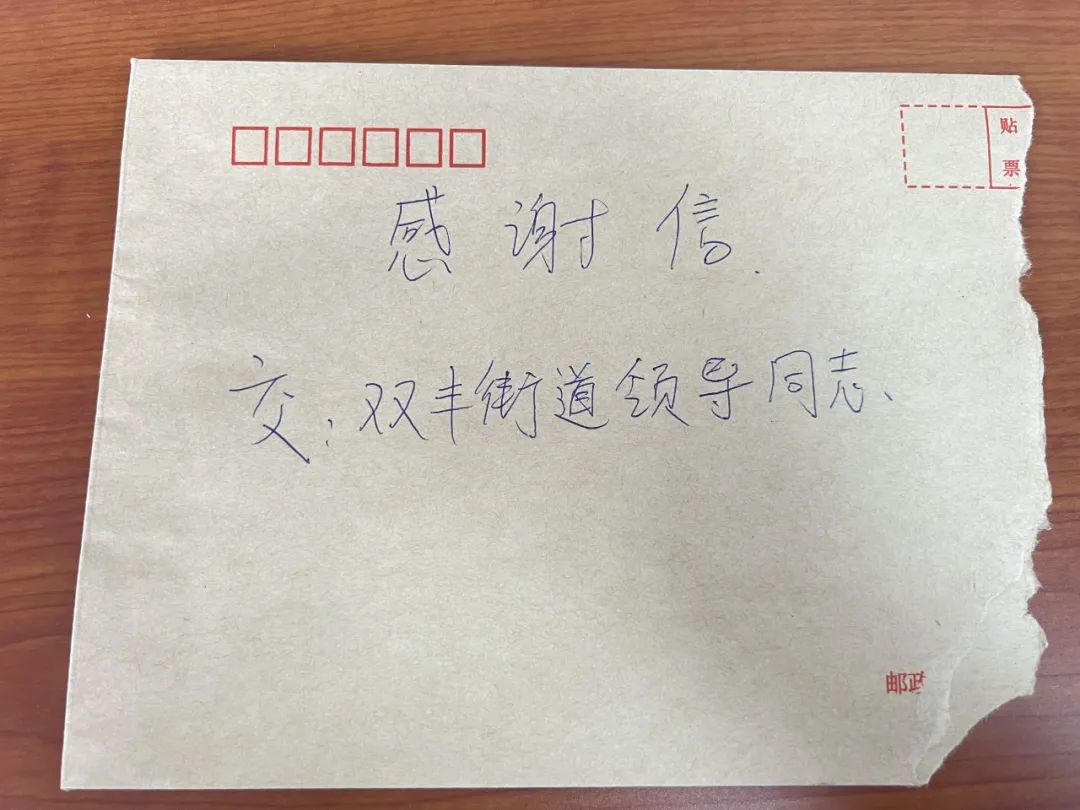 贴
票
感谢信.
交:双丰街道领导同志、
邮政